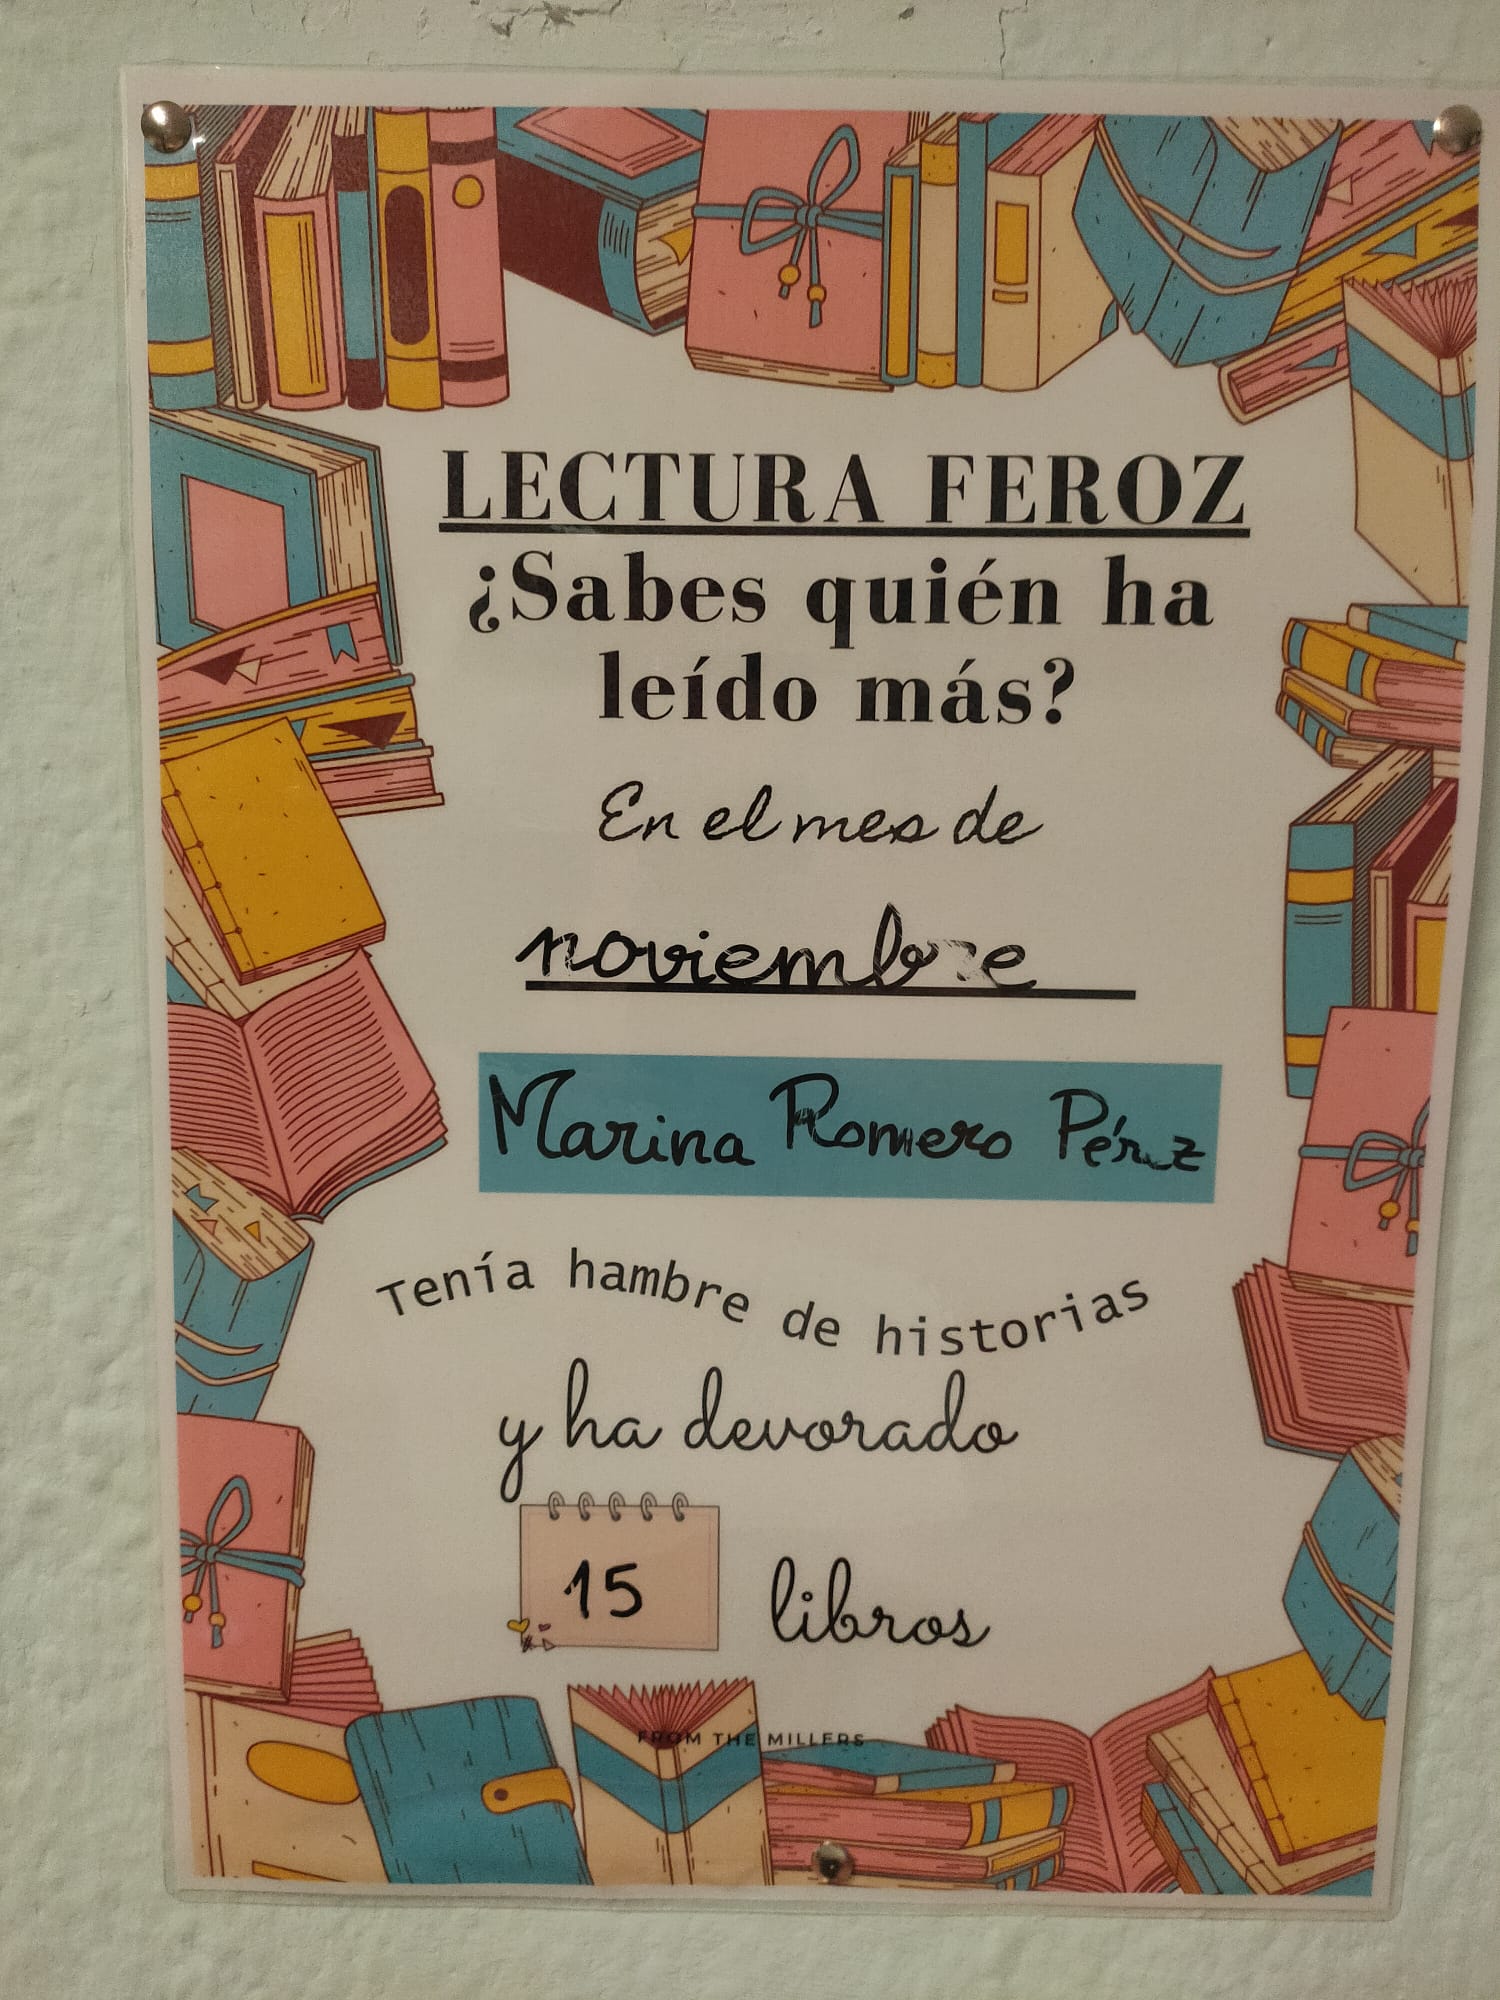 LECTURA FEROZ
¿Sabes quién ha
leído más?
En el mes de
noviembre
Marina Romero Pérez
Tenía hambre de historias
y ha devorado
15 libros
FROM THE MILLERS